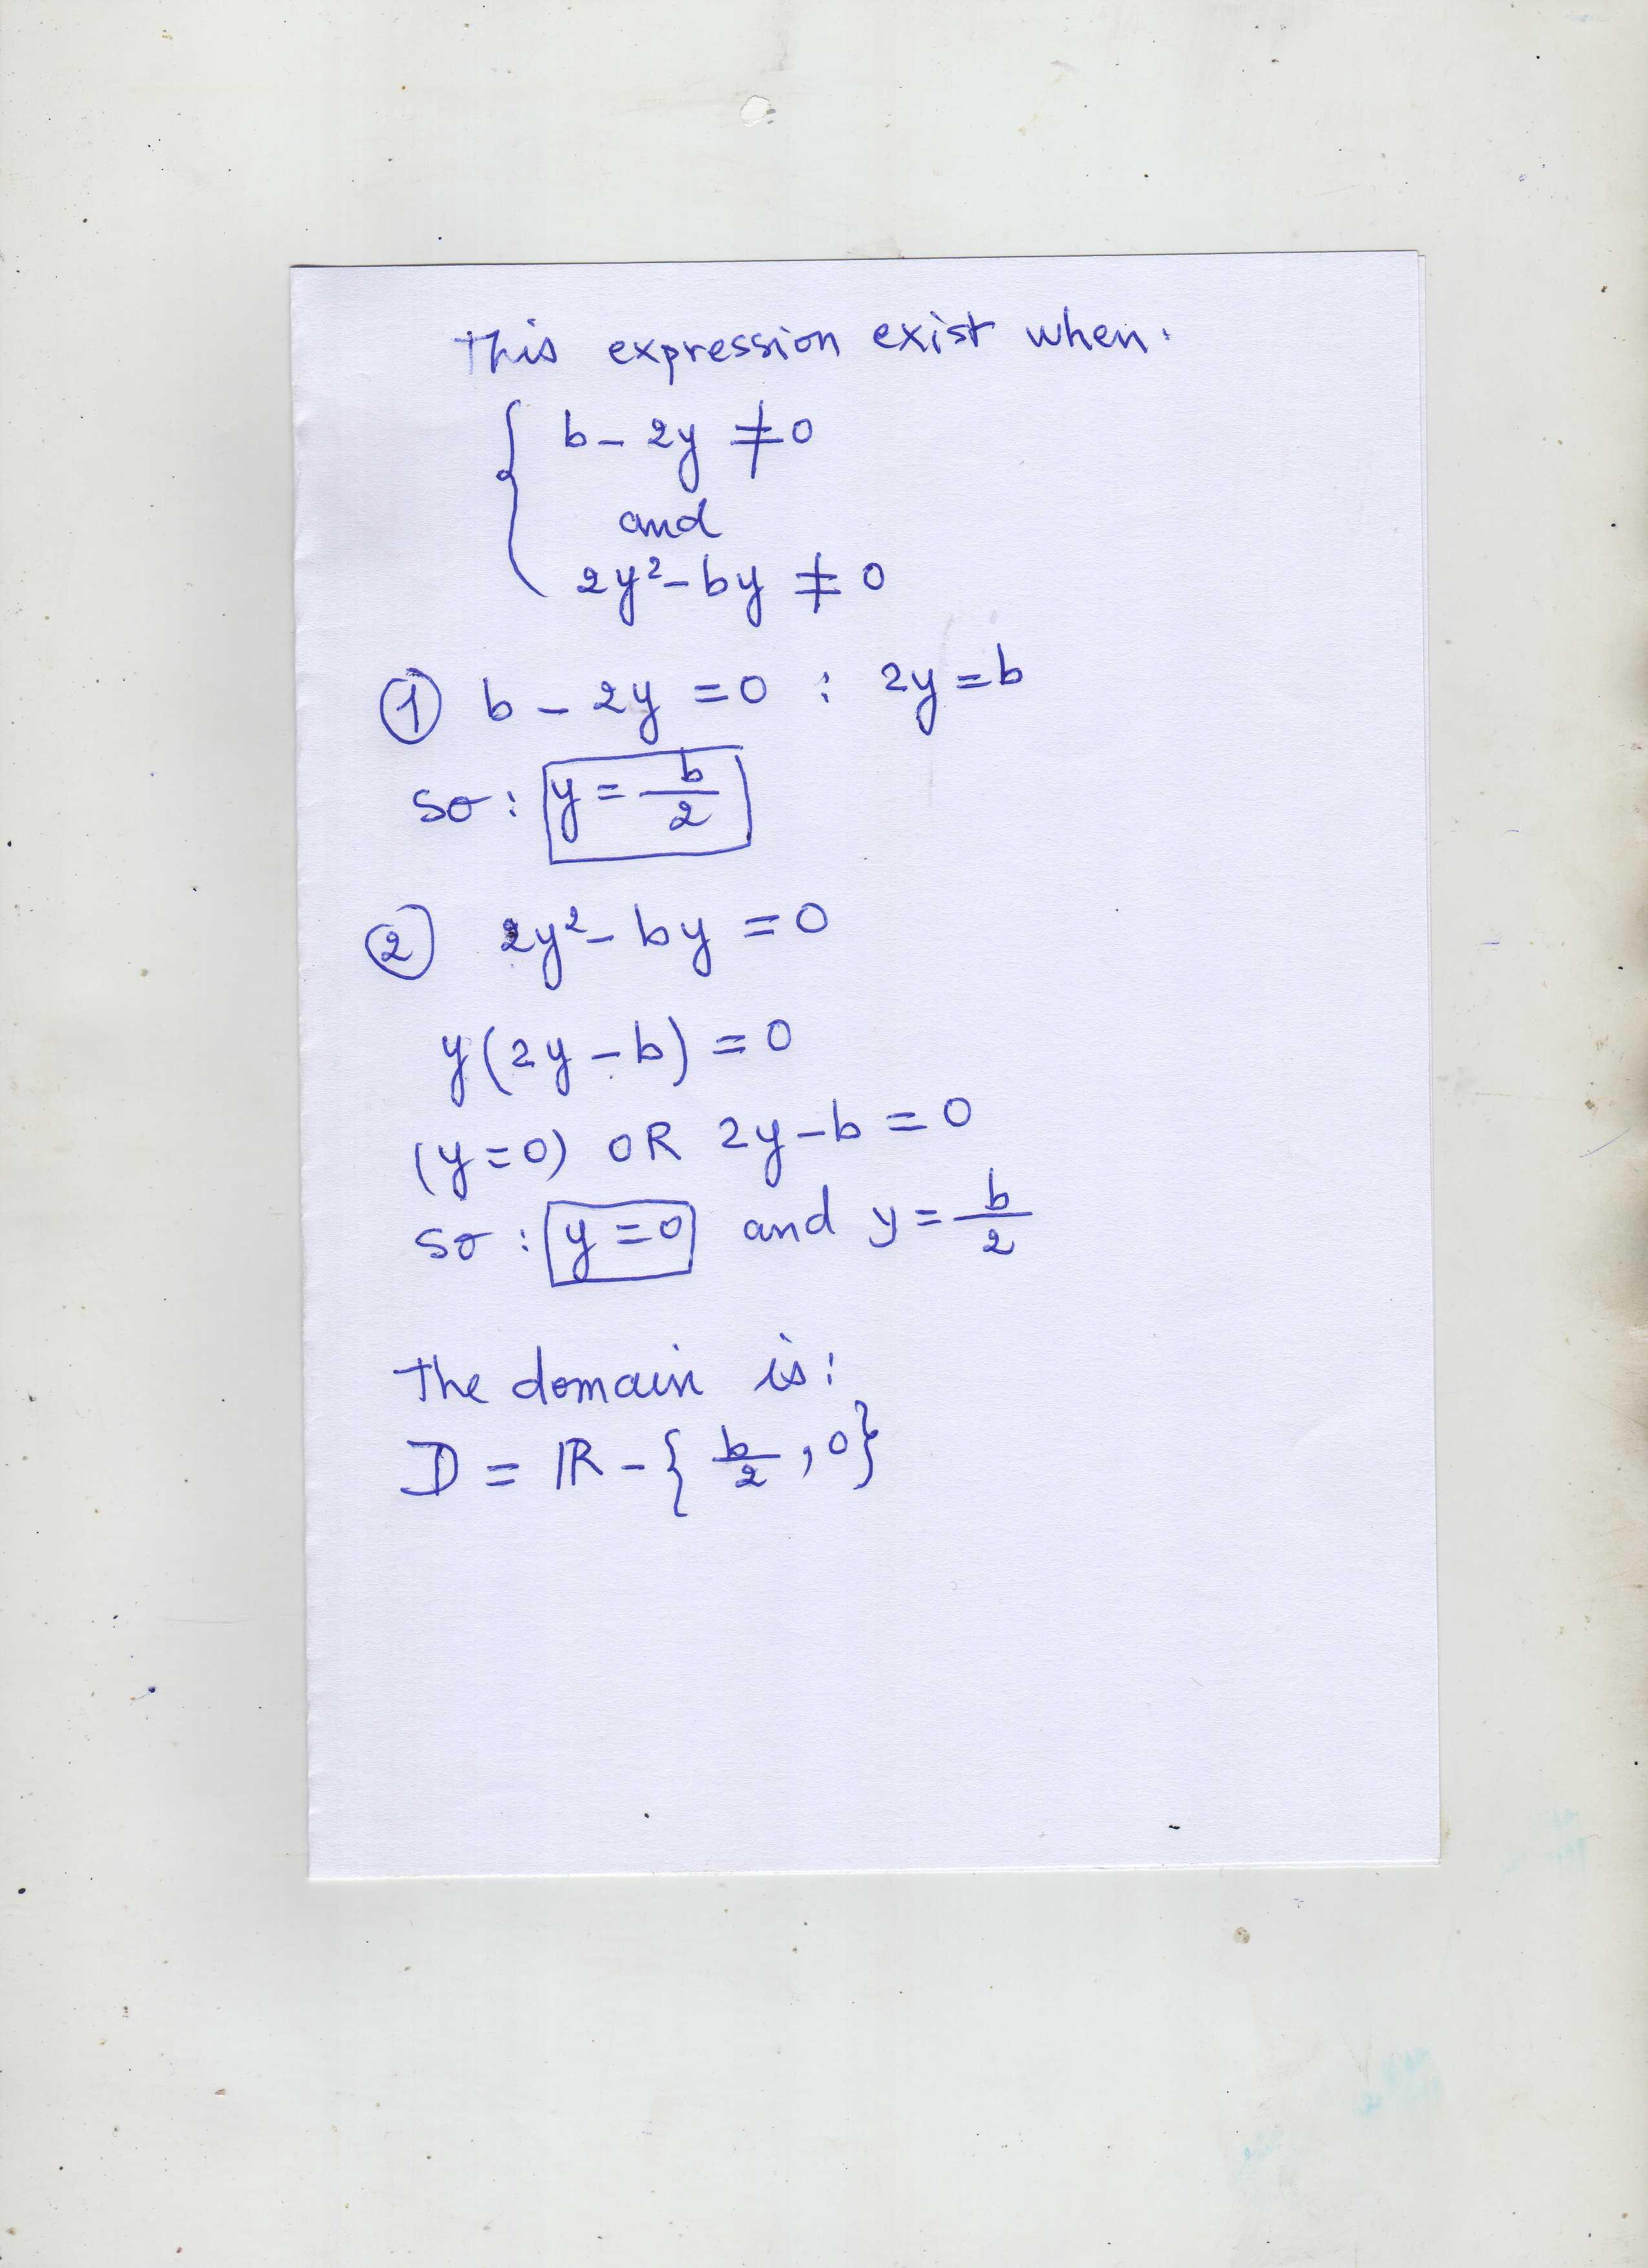 This expression exist when.
{ b - 2y ≠ 0
and
2y² - by ≠ 0
① b - 2y = 0 : 2y = b
so : y = b/2
② 2y² - by = 0
y(2y - b) = 0
(y = 0) OR 2y - b = 0
so : y = 0 and y = b/2
The domain is :
D = ℝ - { b/2 , 0 }